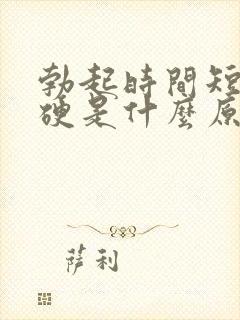 勃起時間短
硬是什麼原
萨利